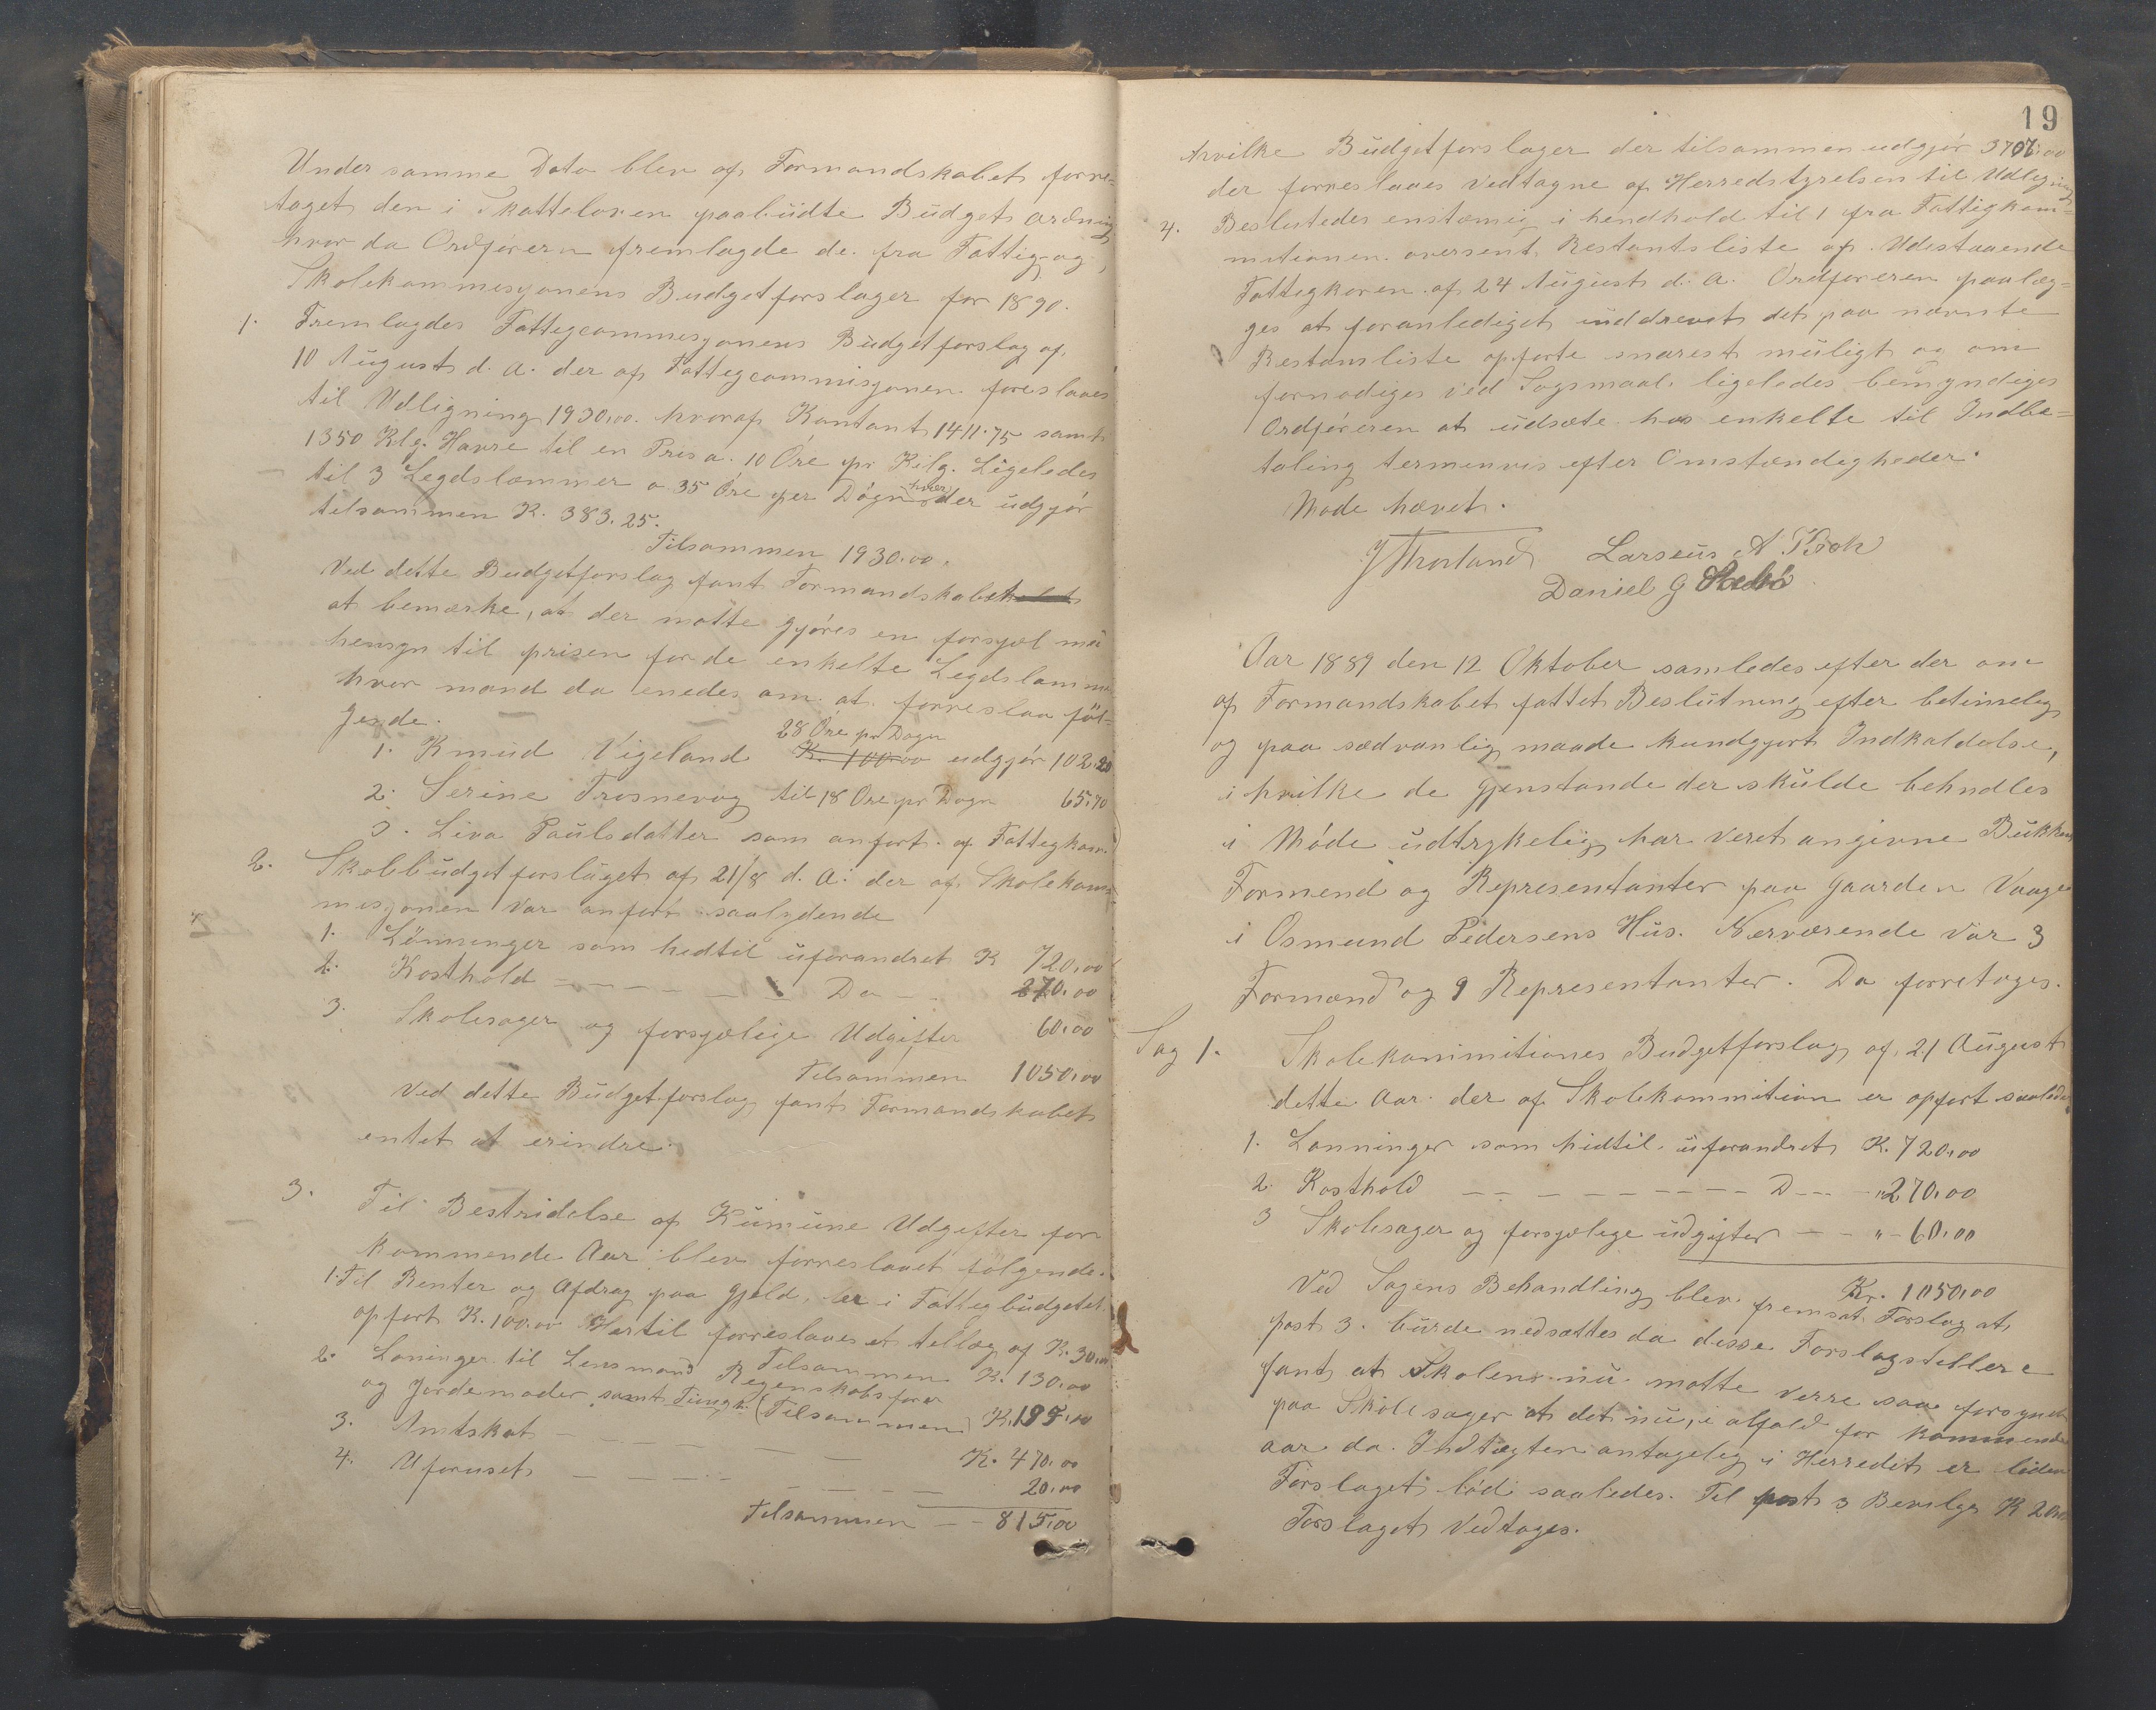 Under samme Dato blev af Formandskabet forre=
taget den i Skatteloven paabüdte Büdget ordning
hvor da Ordføreren fremlagde de fra Fattig og
Skolekommesjonens Budgetforslager for 1890.
1. Fremlagdes Fattegcommesjonens Büdgetforslag af,
10 Aügust d. A. der af Fattegcommisjonen foreslaaes
til Udligning 1930,00. hvoraf Kontant 1411.75 samt
1350 Klg. Havre til en Pris a. 10 Øre pr Kilg. Ligeledes
til 3 Legdslammer a 35 Øre per Døgn hver der üdgjør
tilsammen K. 383.25.
Tilsammen 1930.00.
Ved dette Budgetforslag fant Formandskabet
at bemærke, at der motte gjøres en forsjæl me
hensyn til prisen for de enkelte Legdslamme
hvor mand da enedes om at forreslaa føl-
gende.
1. Knüd Vigeland 28 Øre pr Døgn K. 100.00 udgjør 102.20
2. Serine Trosnevag til 18 Øre pr Døgn 65.70
3. Liva Paülsdatter som anført af Fattegkom.
2. Skolebüdgetforslaget af 21/8 d. A. der af Skolekom=
mesjonen var anført saalydende
1. Lönninger som hedtil üforandret K 720,00
2. Kosthold - - - - - - Do - - 270,00
3. Skolesager og forsjælige Udgifter 60,00
Tilsammen 1050,00
Ved dette Büdgetforslag fant Formandskabet
entet at erindre.
3. Til Bestridelse af Kümüne Udgifter for
kommende Aar blev forreslaaet følgende.
1. Til Renter og Afdrag paa Gjeld, er i Fattegbüdgetet
opført K. 100.00 Hertil forreslaaes et tellæg af K. 30,00
Tilsammen K. 130,00
2. Løninger til Lensmand Regenskabsfører
og Jordemoder samt Tingh. (Tilsammen) K. 195,00
3. Amtskat - - - - - K. 470.00
4. Uforuset - - - - - 20.00
Tilsammen - - 815,00
19
Hvilke Büdgetforslager der tilsammen udgjør 3707,00
der forreslaaes vedtagne af Herredstyrelsen til Udlegning
4. Beslutedes enstemig i hendhold til 1 fra Fattigkom=
mitionen oversent Restantsliste af Udestaaende
Fattegkoren af 24 Aügust d. A. Ordføreren paalæg=
ges at foranlediget inddrevet det paa nævnte
Restanliste opførte snarest müligt og om
fornødiges ved Sogsmaal. ligeledes bemyndiges
Ordføreren at üdsæte hos enkelte til Indbe=
taling termenvis efter Omstændegheder.
Møde hævet.
J Thorland Larseüs A
Daniel G
Aar 1889 den 12 Oktober samledes efter der om
af Formandskabet fattet Beslütning efter betimeleg
og paa sædvanlig maade kundgjort Indkaldelse,
i hvilke de Gjenstande der skülde behndles
i Møde üdtrykelig har veret angivne Bükkens
Formend og Representanter paa Gaarden Vaage
i Osmund Pedersens Hüs. Nerværende var 3
Formænd og 9 Representanter. Da forretoges.
Sag 1. Skolekommitiones Budgetforslag af 21 Aügust
dette Aar. der af Skolekommition er opført saaledes
1. Lønninger som hidtil üforandret K. 720,00
2 Kosthold - - - - - - - - D - - - " 270,00
3 Skolesager og forsjælege üdgifter - - " - 60,00
Kr. 1050,00
Ved Sagens Behandling blev fremsat Forslag at
post 3. bürde nedsættes da disse Forslagstellere
fant at Skolens nü motte verre saa forsynet
paa Skolesager at det nü, i alfald for kommende
aar da Indtægten antageleg i Herredet er liden
Forslaget lød saaledes. Til post 3 Bevilges K 20,00
Forslaget vedtoges.